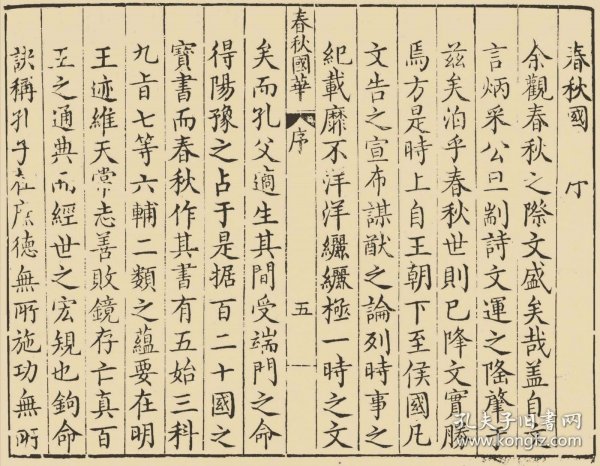 春秋國
余觀春秋之際文盛矣哉蓋自
言炳采公旦制詩文運之隆肇
茲矣洎乎春秋世則已降文實勝
焉方是時上自王朝下至侯國凡
文告之宣布謀猷之論列時事之
紀載靡不洋洋纚纚極一時之文
春秋國華 序 五
矣而孔父適生其間受端門之命
得陽豫之占于是据百二十國之
寶書而春秋作其書有五始三科
九旨七等六輔二類之蘊要在明
王迹維天常志善敗鏡存亡真百
王之通典而經世之宏規也鉤命
訣稱孔子在庶德無所施功無所
孔夫子旧书网
www.kongfz.com